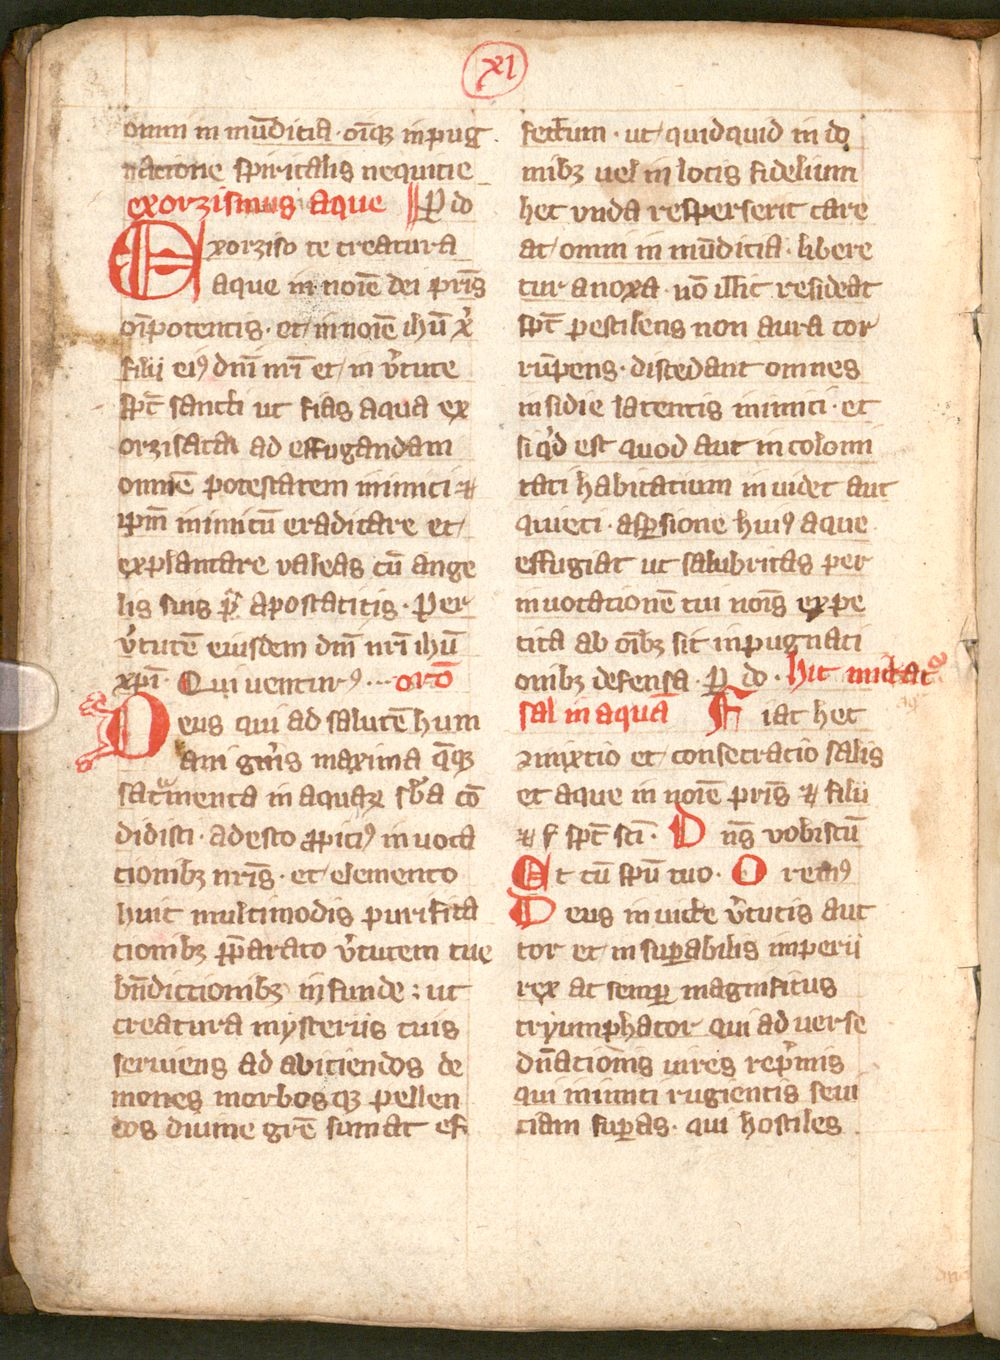 xi
omni in mūdicia · oīq̄ꝫ inpug
nacione spiritalis nequicie
exorzismus aque ꝑ do
Exorziso te creatura
aque in noīe dei pr̄is
oīpotentis · et in noīe ihū xͥ
filii eiꝰ dnī nr̄i et in v̓tute
sp̄c sancti ut fias aqua ex
orzisata ad effugandam
omnē potestatem inimici ⁊
ip̄m inimicū eradicare et
explantare valeas cū ange
lis suis p̄ apostaticis · Per
v̓tutē eiusdem dnī nr̄i ihū
xp̄i · Qui venturꝰ · oro᷒
Deus qui ad salutē hum
ani gn̓is maxima q̄qꝫ
sacᷓmenta in aquaꝝ sb̓a cō
didisti · adesto ꝓpiciꝰ in uoca
cionibꝫ nr̄is · et elemento
huic multimodis purifica
cionibꝫ p̄parato v̓tutem tue
bn̄dictionibꝫ infunde : ut
creatura mysteriis tuis
seruiens ad abiciendos de
mones morbosqꝫ pellen
dos diuine grē sumat ef
fectum · ut quidquid in do
mibꝫ uel in locis fidelium
hec vnda resperserit care
at omni in mūdicia · libere
tur a noxa · nō illic resideat
sp̄c pestilens non aura cor
rūpens · discedant omnes
insidie latentis inimici · et
si qͥd est quod aut in colomi
tati habitatium in uidet aut
quieti · asꝑsione huiꝰ aque
effugiat ut salubritas per
in uocationē tui nois̄ expe
tita ab oībꝫ sit inpugnati
onibꝫ defensa · ꝑ do · hic mictatᷣ
sal in aquā Fiat hec
ꝯmixtio et consecracio salis
et aque in noīe pr̄is ⁊ filii
⁊ s̄ sp̄c sc̄i · Dn̄s vobiscū
Et cū sp̄u tuo · Oremꝰ
Deus in uicte v̓tutis auc
tor et in suꝑabilis imperii
rex ac semꝑ magnificus
tryumphator qui ad uerse
dn̄acionis uires rep̓mis
qui inimici rugientis seui
ciam suꝑas · qui hostiles